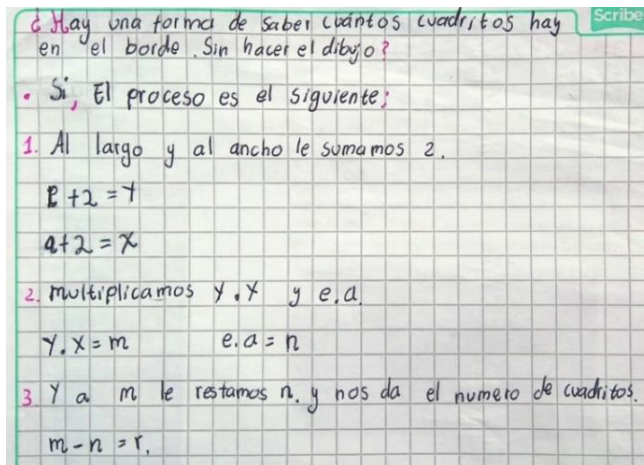 ¿Hay una forma de saber cuántos cuadritos hay
Scribe
en el borde. Sin hacer el dibujo?
• Si, El proceso es el siguiente:
1. Al largo y al ancho le sumamos 2.
l+2=y
a+2=x
2. multiplicamos y.x y e.a.
y.x=m e.a=n
3. Y a m le restamos n. y nos da el numero de cuadritos.
m-n=r.